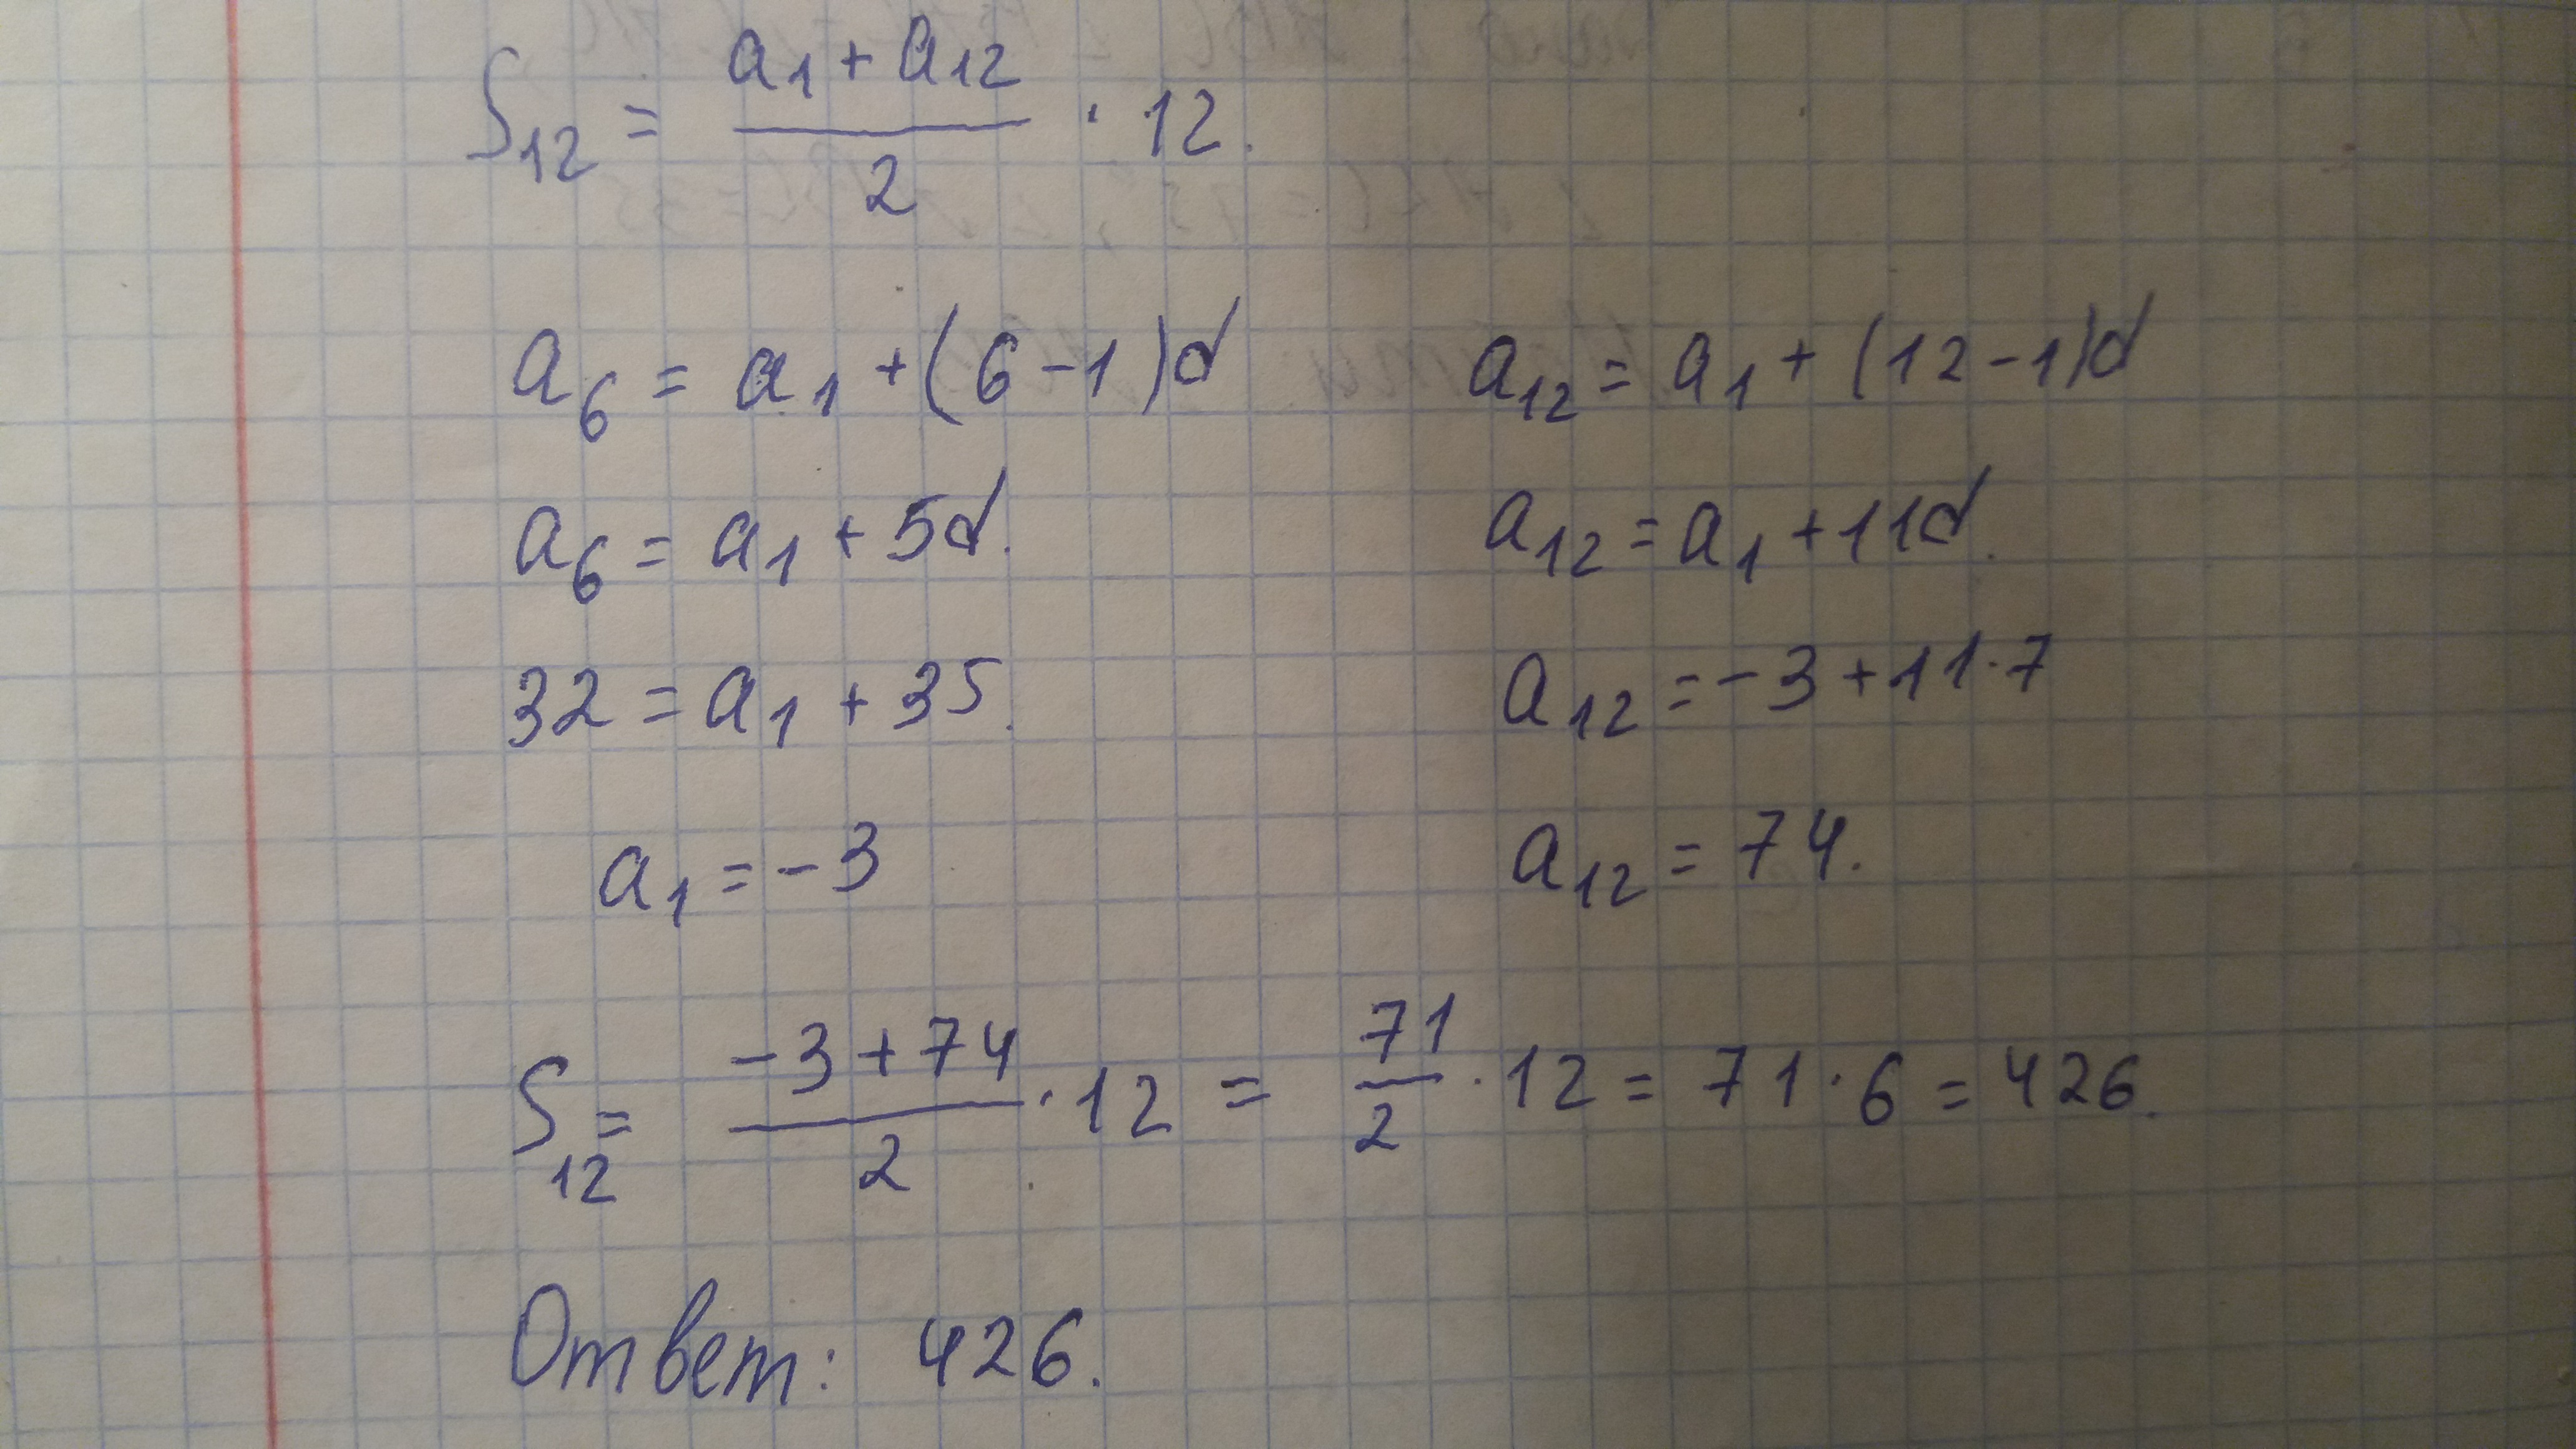 S₁₂ = (a₁ + a₁₂)/2 · 12.
a₆ = a₁ + (6 - 1)d
a₆ = a₁ + 5d.
32 = a₁ + 35.
a₁ = -3
a₁₂ = a₁ + (12 - 1)d
a₁₂ = a₁ + 11d.
a₁₂ = -3 + 11 · 7
a₁₂ = 74.
S₁₂ = (-3 + 74)/2 · 12 = 71/2 · 12 = 71 · 6 = 426.
Ответ: 426.